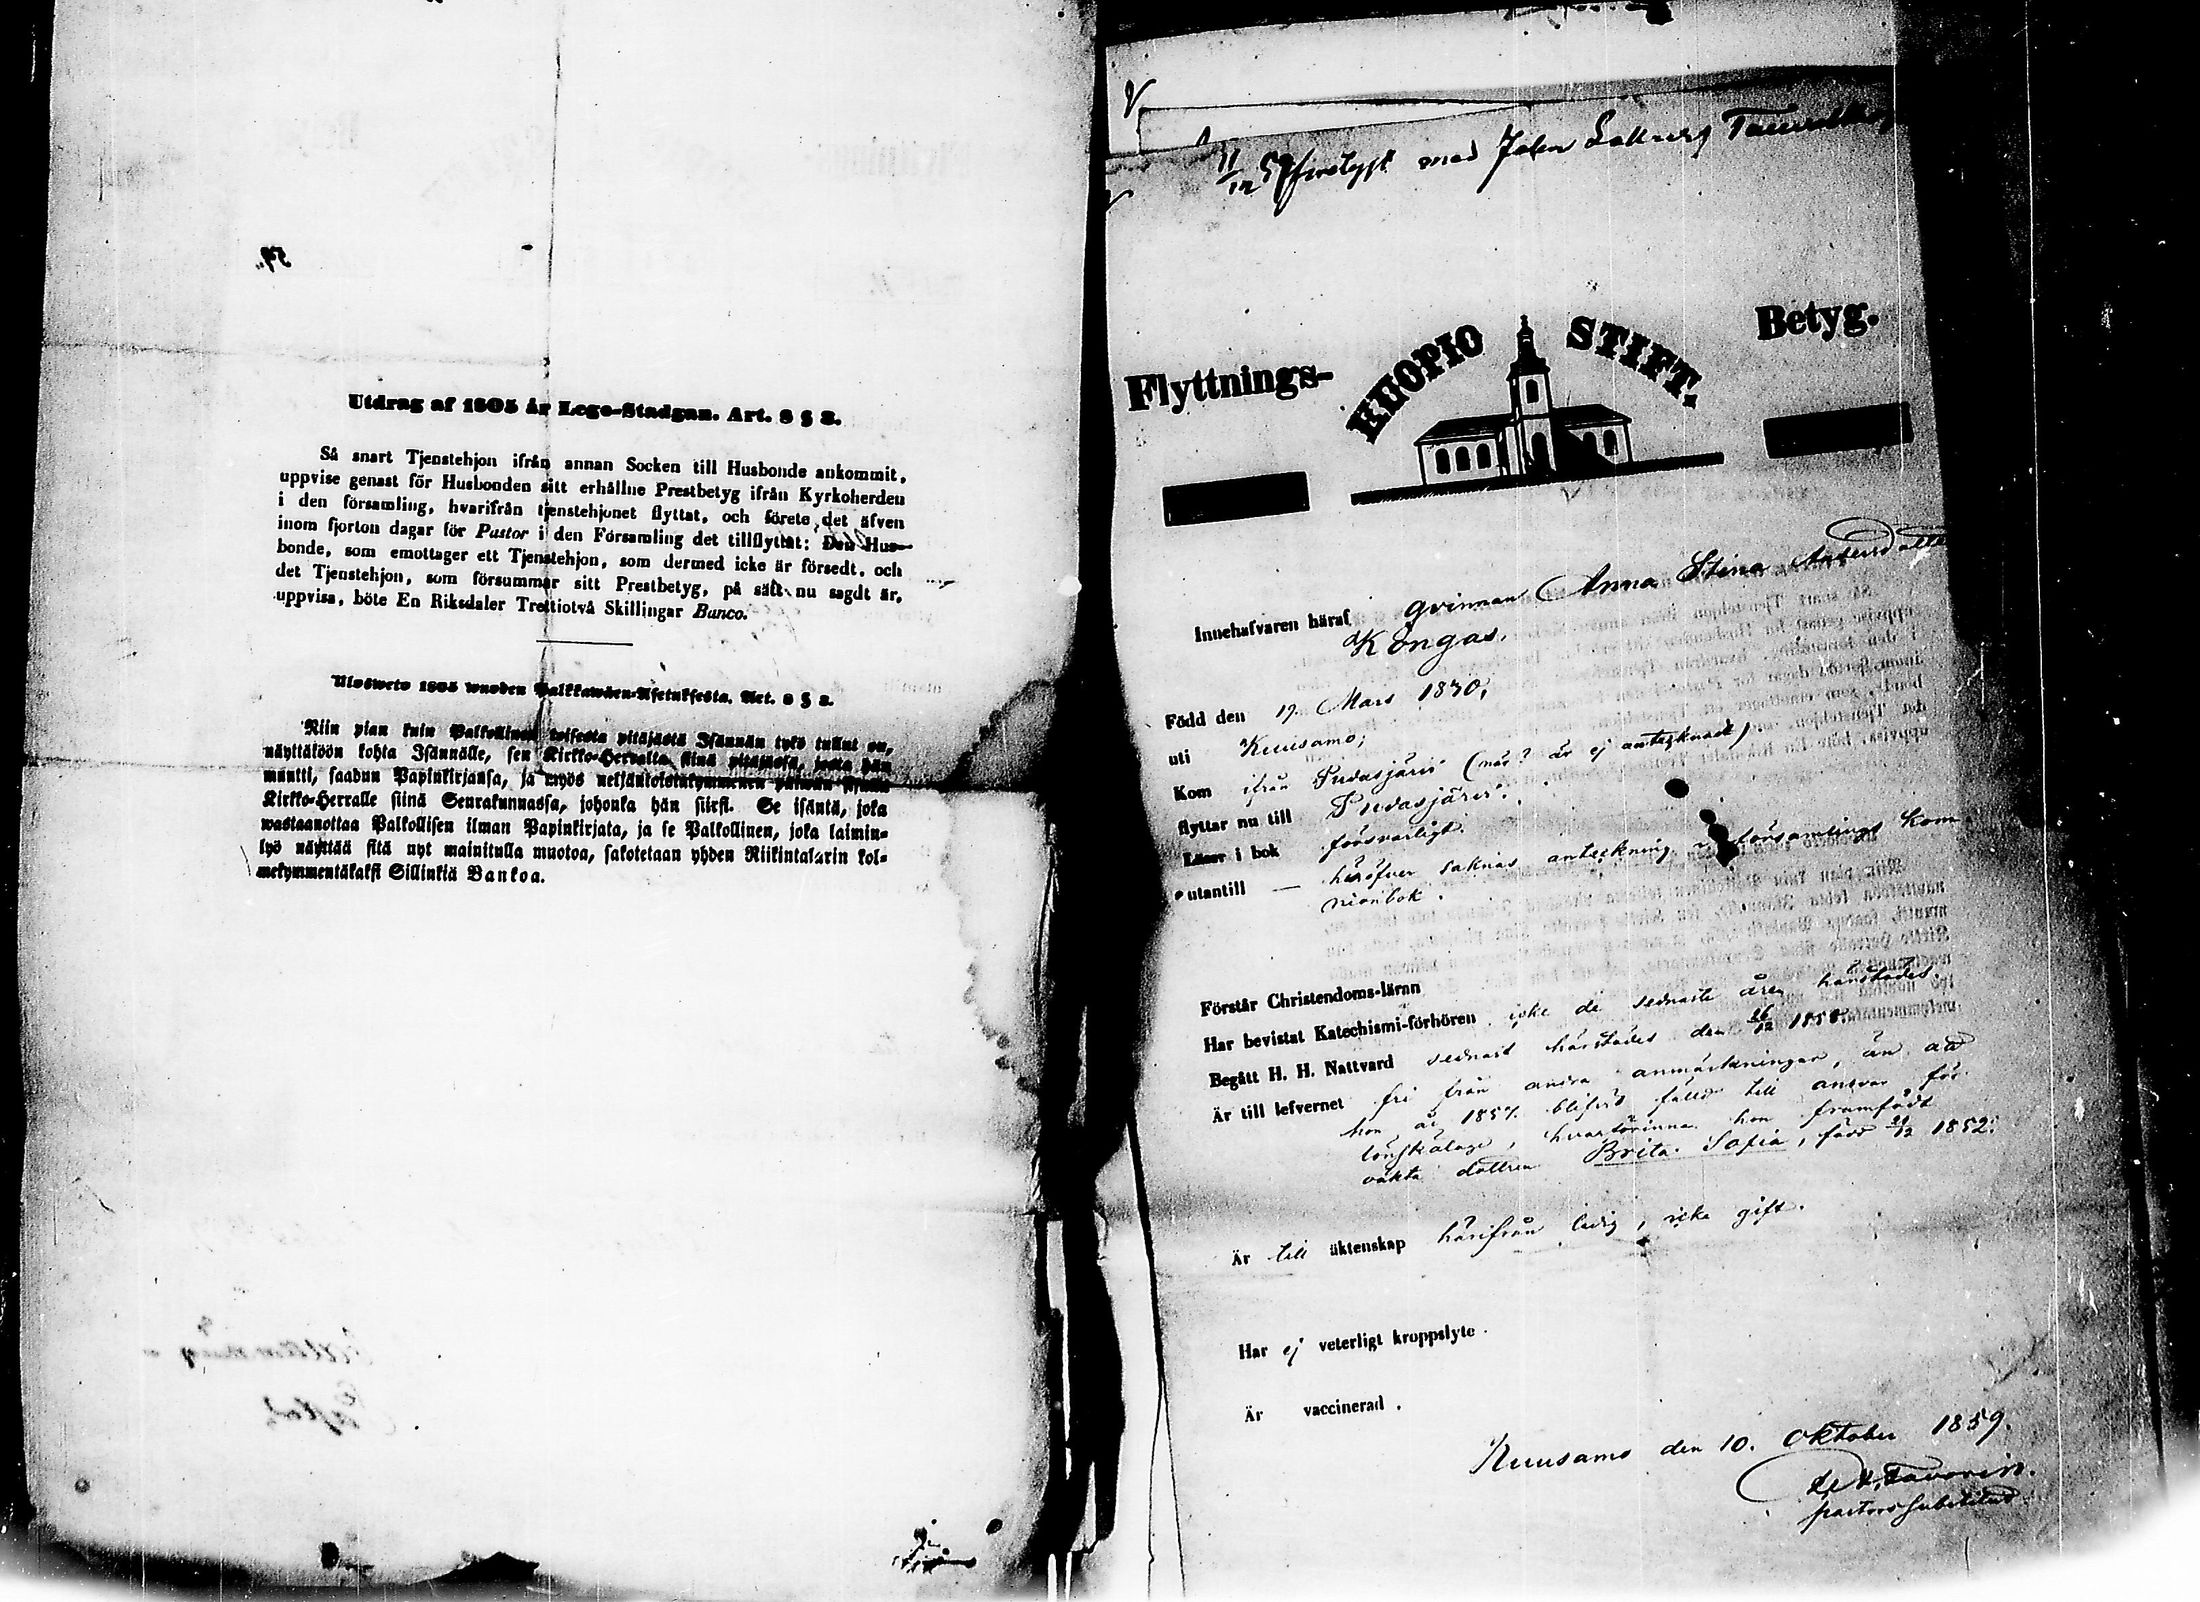 Utdrag af 1805 år Lego-Stadgan. Art. 8 § 2.
Så snart Tjenstehjon ifrån annan Socken till Husbonde ankommit,
uppvise genast för Husbonden sitt erhållne Prestbetyg ifrån Kyrkoherden
i den församling, hvarifrån tjenstehjonet flyttat, och förete det äfven
inom fjorton dagar för Pastor i den Församling det tillflyttat: Den Hus-
bonde, som emottager ett Tjenstehjon, som dermed icke är försedt, och
det Tjenstehjon, som försummar sitt Prestbetyg, på sätt nu sagdt är,
uppvisa, böte En Riksdaler Trettiotvå Skillingar Banco.
Ulosweto 1805 wuoden Palkkawäen-Asetuksesta. Art. 8 § 2.
Niin pian kuin Palkollinen toisesta pitäjästä Isännän tykö tullut on,
näyttäköön kohta Isännälle, sen Kirkko-Herralta siinä pitäjässä, josta hän
muutti, saadun Papinkirjansa, ja myös neljäntoistakymmenen päiwän
Kirkko-Herralle siinä Seurakunnassa, johonka hän siirsi. Se isäntä, joka
wastaanottaa Palkollisen ilman Papinkirjata, ja se Palkollinen, joka laimin-
lyö näyttää sitä nyt mainitulla muotoa, sakotetaan yhden Riikintalarin kol-
mekymmentäkaksi Sillinkiä Bankoa.
11/12 59 med Johan
Flyttnings- KUOPIO STIFT. Betyg.
Innehafvaren häraf qvinnan Anna Stina Andersdotter
Köngas,
Född den 19. Mars 1830,
uti Kuusamo;
Kom ifrån Pudasjärvi (når? är ej antecknadt)
flyttar nu till Pudasjärvi.
Läser i bok försvarligt.
utantill — häröfver saknas anteckning i församlings kom-
nionbok.
Förstår Christendoms-lärnn
Har bevistat Katechismi-förhören icke de sednaste åren härstädes.
Begått H. H. Nattvard sednast härstädes den 26/12 1858.
Är till lefvernet fri från andra anmärkningar, än att
hon år 1857 blifvit fälld till ansvar för
lönskaläge, hvarförinnan hon framfödt
oäkta dottren Brita Sofia, född 21/12 1852.
Är till äktenskap härifrån ledig, icke gift.
Har ej veterligt kroppslyte.
Är vaccinerad.
Kuusamo den 10. Oktober 1859.
Favorin.
pastors substitut